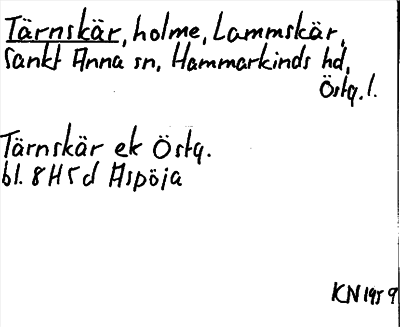 Tärnskär, holme, Lammskär,
Sankt Anna sn, Hammarkinds hd,
Östg. l.
Tärnskär ek Östg.
bl. 8H5d Aspöja
KN 1959